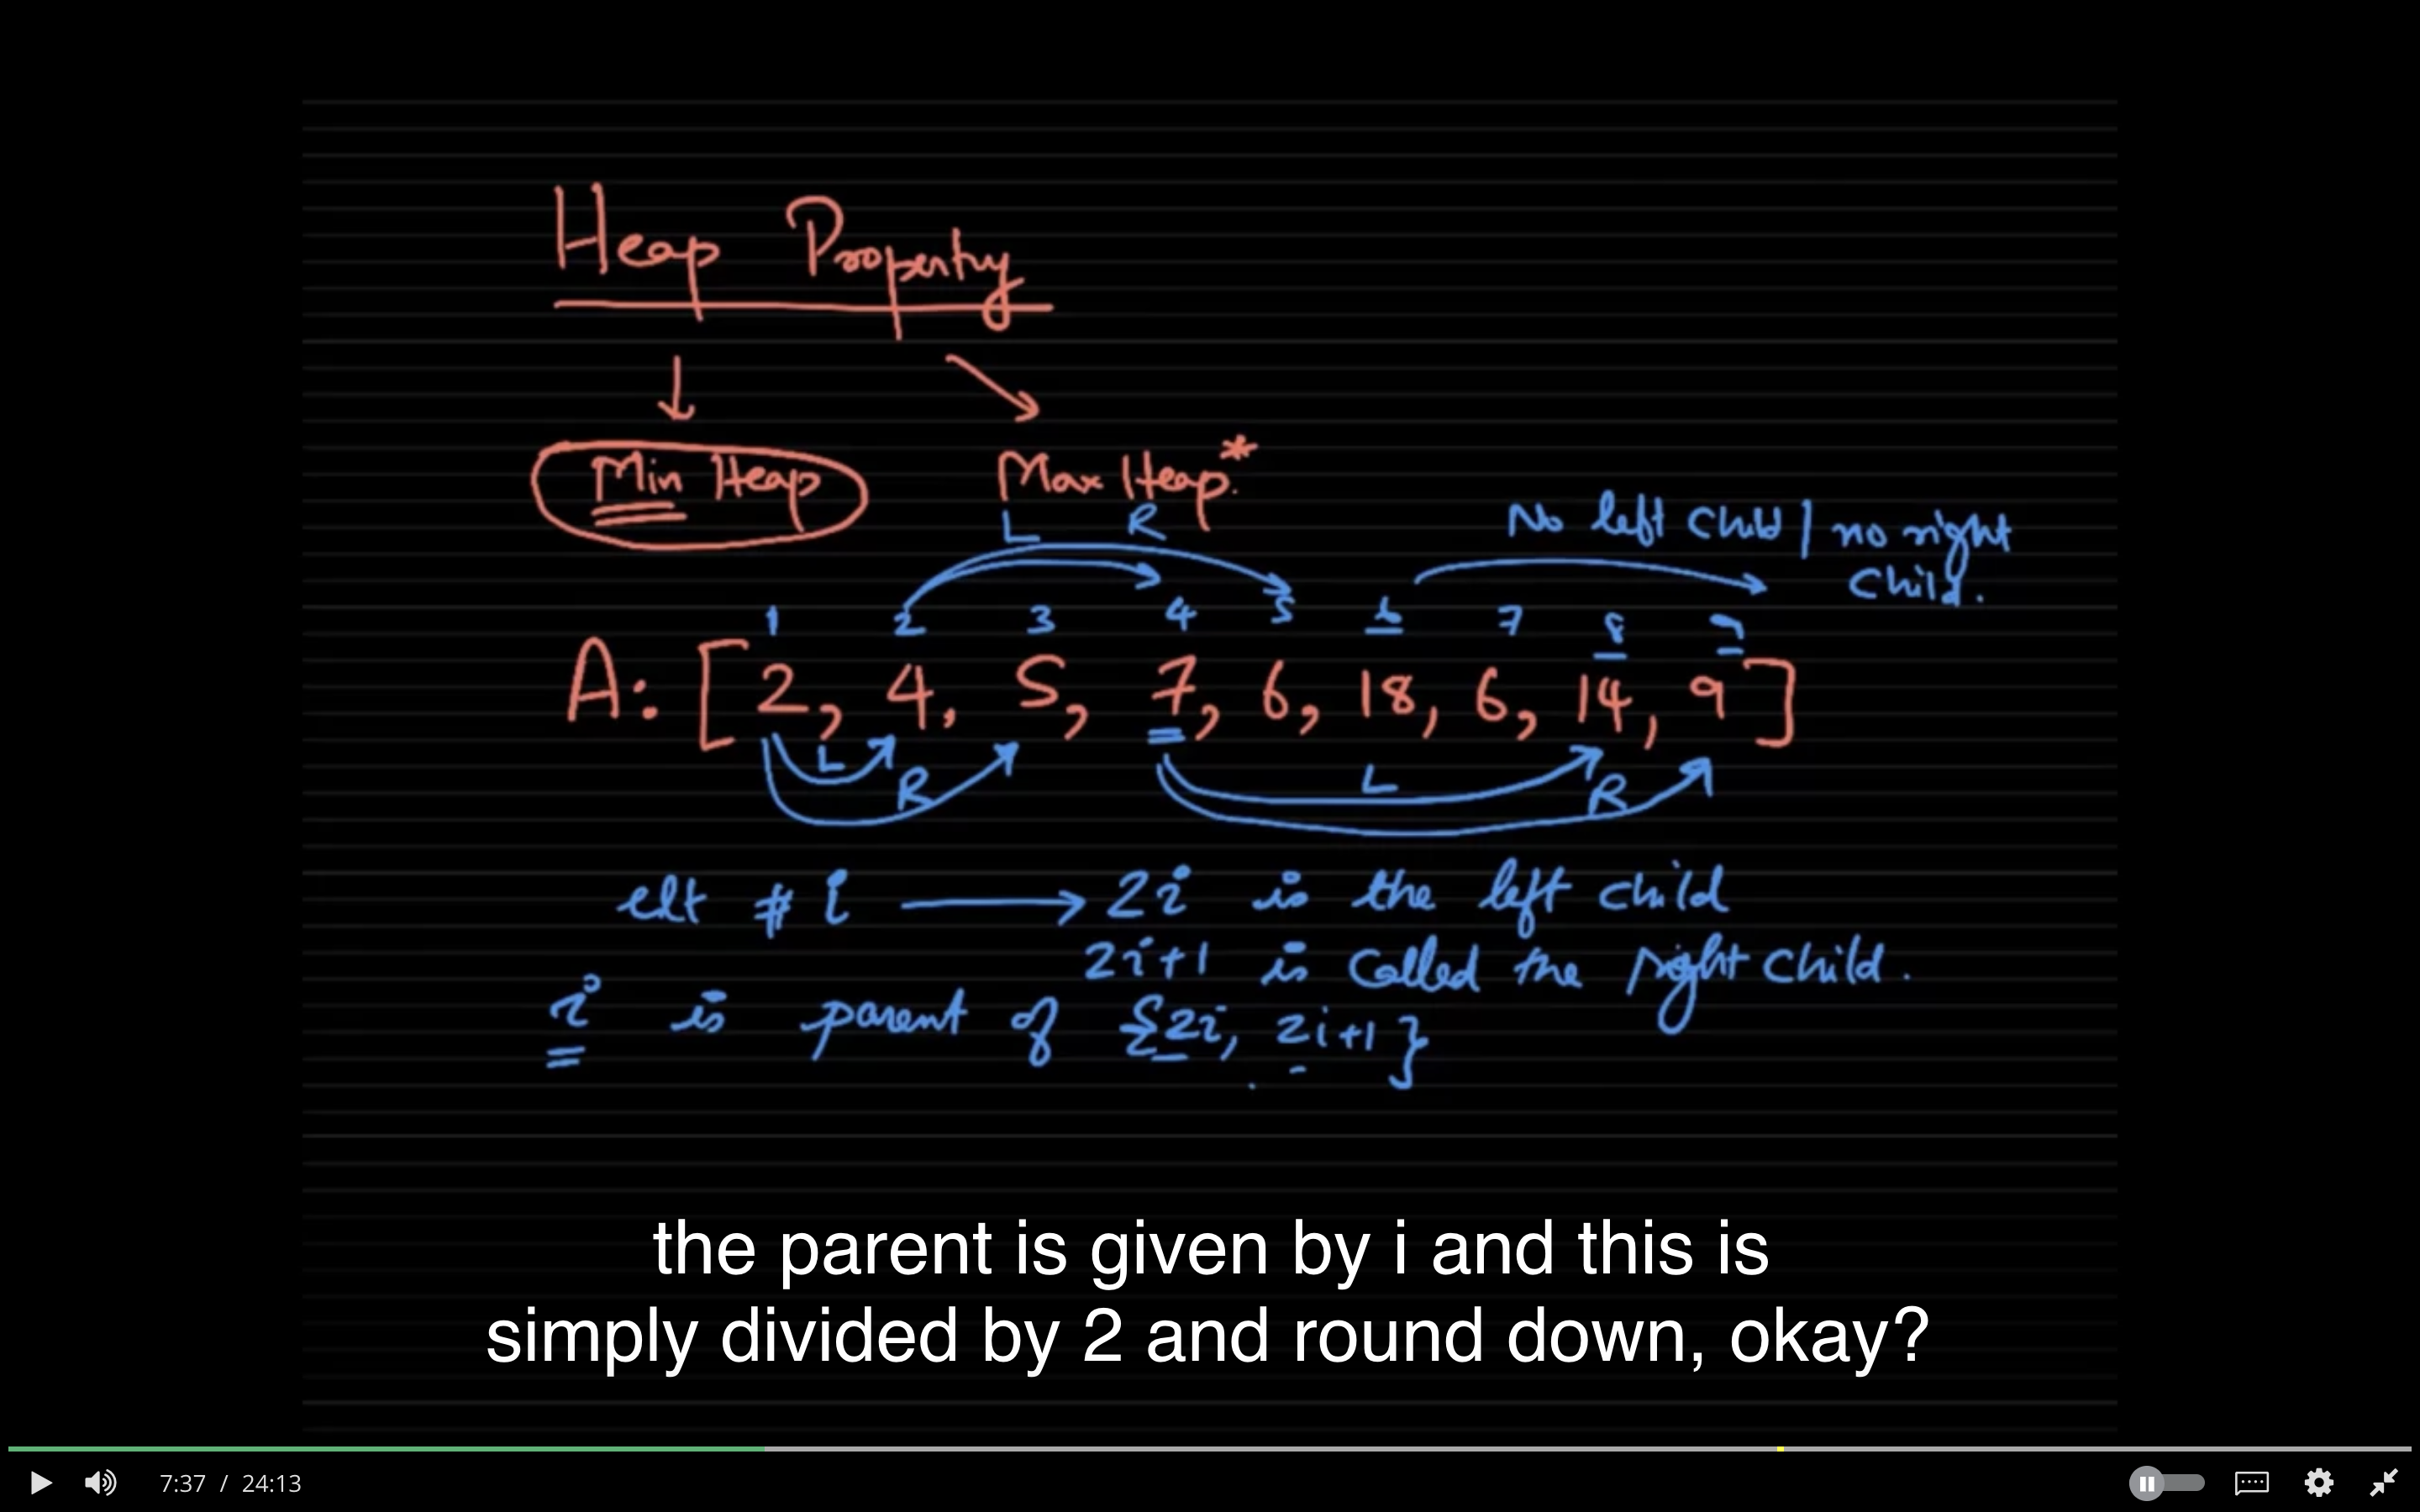 Heap Property
Min Heap Max Heap*.
L R No left child / no right
child.
1 2 3 4 5 6 7 8 9
A: [2, 4, 5, 7, 6, 18, 6, 14, 9]
L R L R
elt # i → 2i is the left child
2i+1 is called the right child.
i is parent of {2i, 2i+1}
the parent is given by i and this is
simply divided by 2 and round down, okay?
7:37 / 24:13